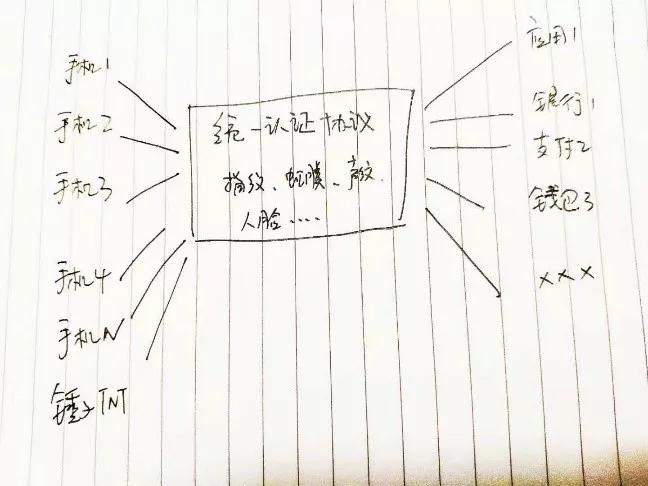 手机1
手机2
手机3
手机4
手机N
锤子TNT
统一认证协议
指纹、虹膜、声纹、
人脸.....
应用1
银行1
支付2
钱包3
×××